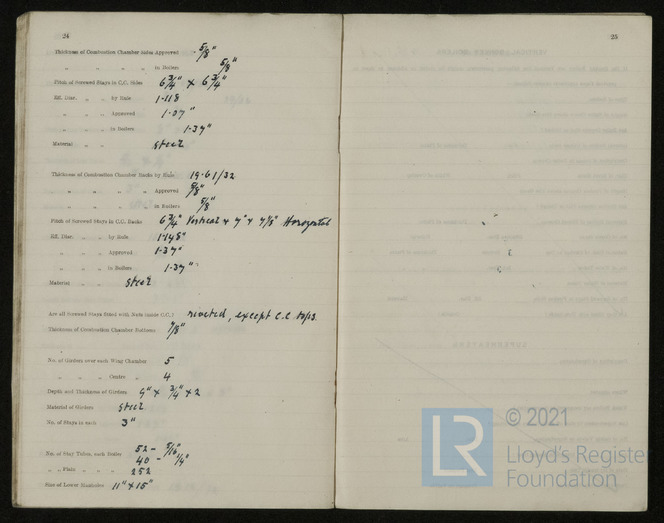 24
Thickness of Combustion Chamber Sides Approved 5/8"
" " " " in Boilers 5/8"
Pitch of Screwed Stays in C.C. Sides 6 3/4" x 6 3/4"
Eff. Diar. " " by Rule 1.118
" " " Approved 1.37"
" " " in Boilers 1.37"
Material " " Steel
Thickness of Combustion Chamber Backs by Rule 19.61/32
" " " " Approved 5/8"
" " " " in Boilers 5/8"
Pitch of Screwed Stays in C.C. Backs 6 3/4" Vertical x 7" x 7 1/8" Horozontal
Eff. Diar. " " by Rule 1.148"
" " " Approved 1.37"
" " " in Boilers 1.37"
Material " " Steel
Are all Screwed Stays fitted with Nuts inside C.C.? riveted, except C.C tops.
Thickness of Combustion Chamber Bottoms 7/8"
No. of Girders over each Wing Chamber 5
" " " Centre " 4
Depth and Thickness of Girders 9" x 3/4" x 2
Material of Girders Steel
No. of Stays in each 3"
No. of Stay Tubes, each Boiler 52 - 5/16"
40 - 1/4"
" " Plain " " " 252
Size of Lower Manholes 11" x 15"
25
© 2021
LR
Lloyd's Register
Foundation